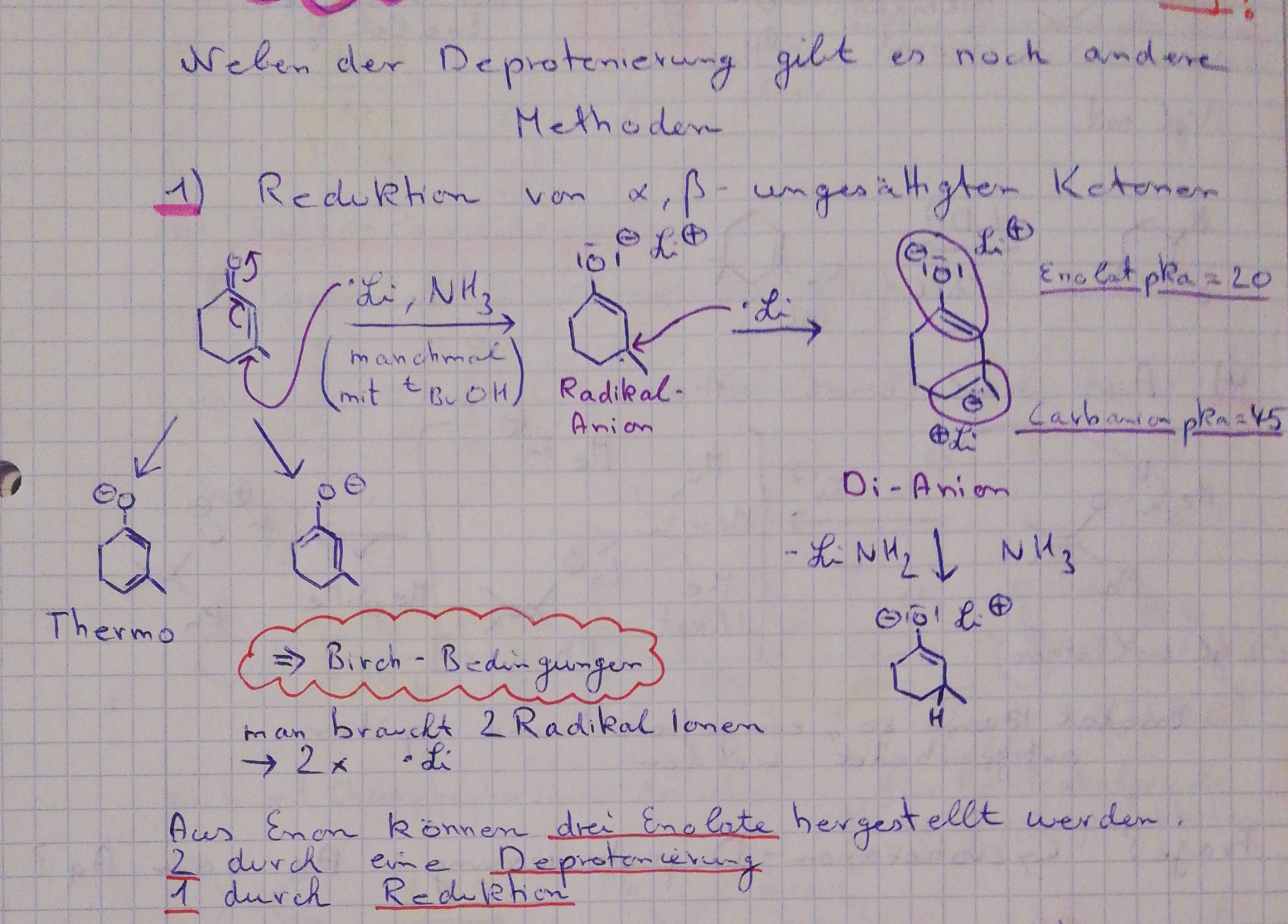 Neben der Deprotonierung gibt es noch andere
Methoden
1) Reduktion von α, β - ungesättigten Ketonen
O
·Li, NH3
(manchmal
mit tBuOH)
|O̅| ⊖ Li⊕
Radikal-
Anion
·Li
⊖ |O̅| Li⊕
Enolat pka = 20
⊖
⊕Li
Carbanion pka = 45
Di-Anion
- LiNH2 NH3
⊖O
O⊖
Thermo
⊖|O̅| Li⊕
H
⇒ Birch - Bedingungen
man braucht 2 Radikal Ionen
→ 2x ·Li
Aus Enon können drei Enolate hergestellt werden.
2 durch eine Deprotonierung
1 durch Reduktion